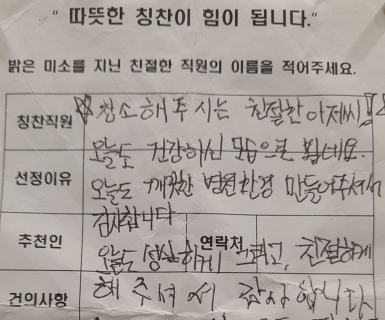 “ 따뜻한 칭찬이 힘이 됩니다.”
밝은 미소를 지닌 친절한 직원의 이름을 적어주세요.
칭찬직원 청소해주시는 친절한 아저씨!!
오늘도 건강하신 모습으로 뵙네요.
선정이유 오늘도 깨끗한 병원환경 만들어주셔서
감사합니다
추천인 연락처
오늘도 성실하게 그리고, 친절하게
건의사항 해주셔서 감사합니다